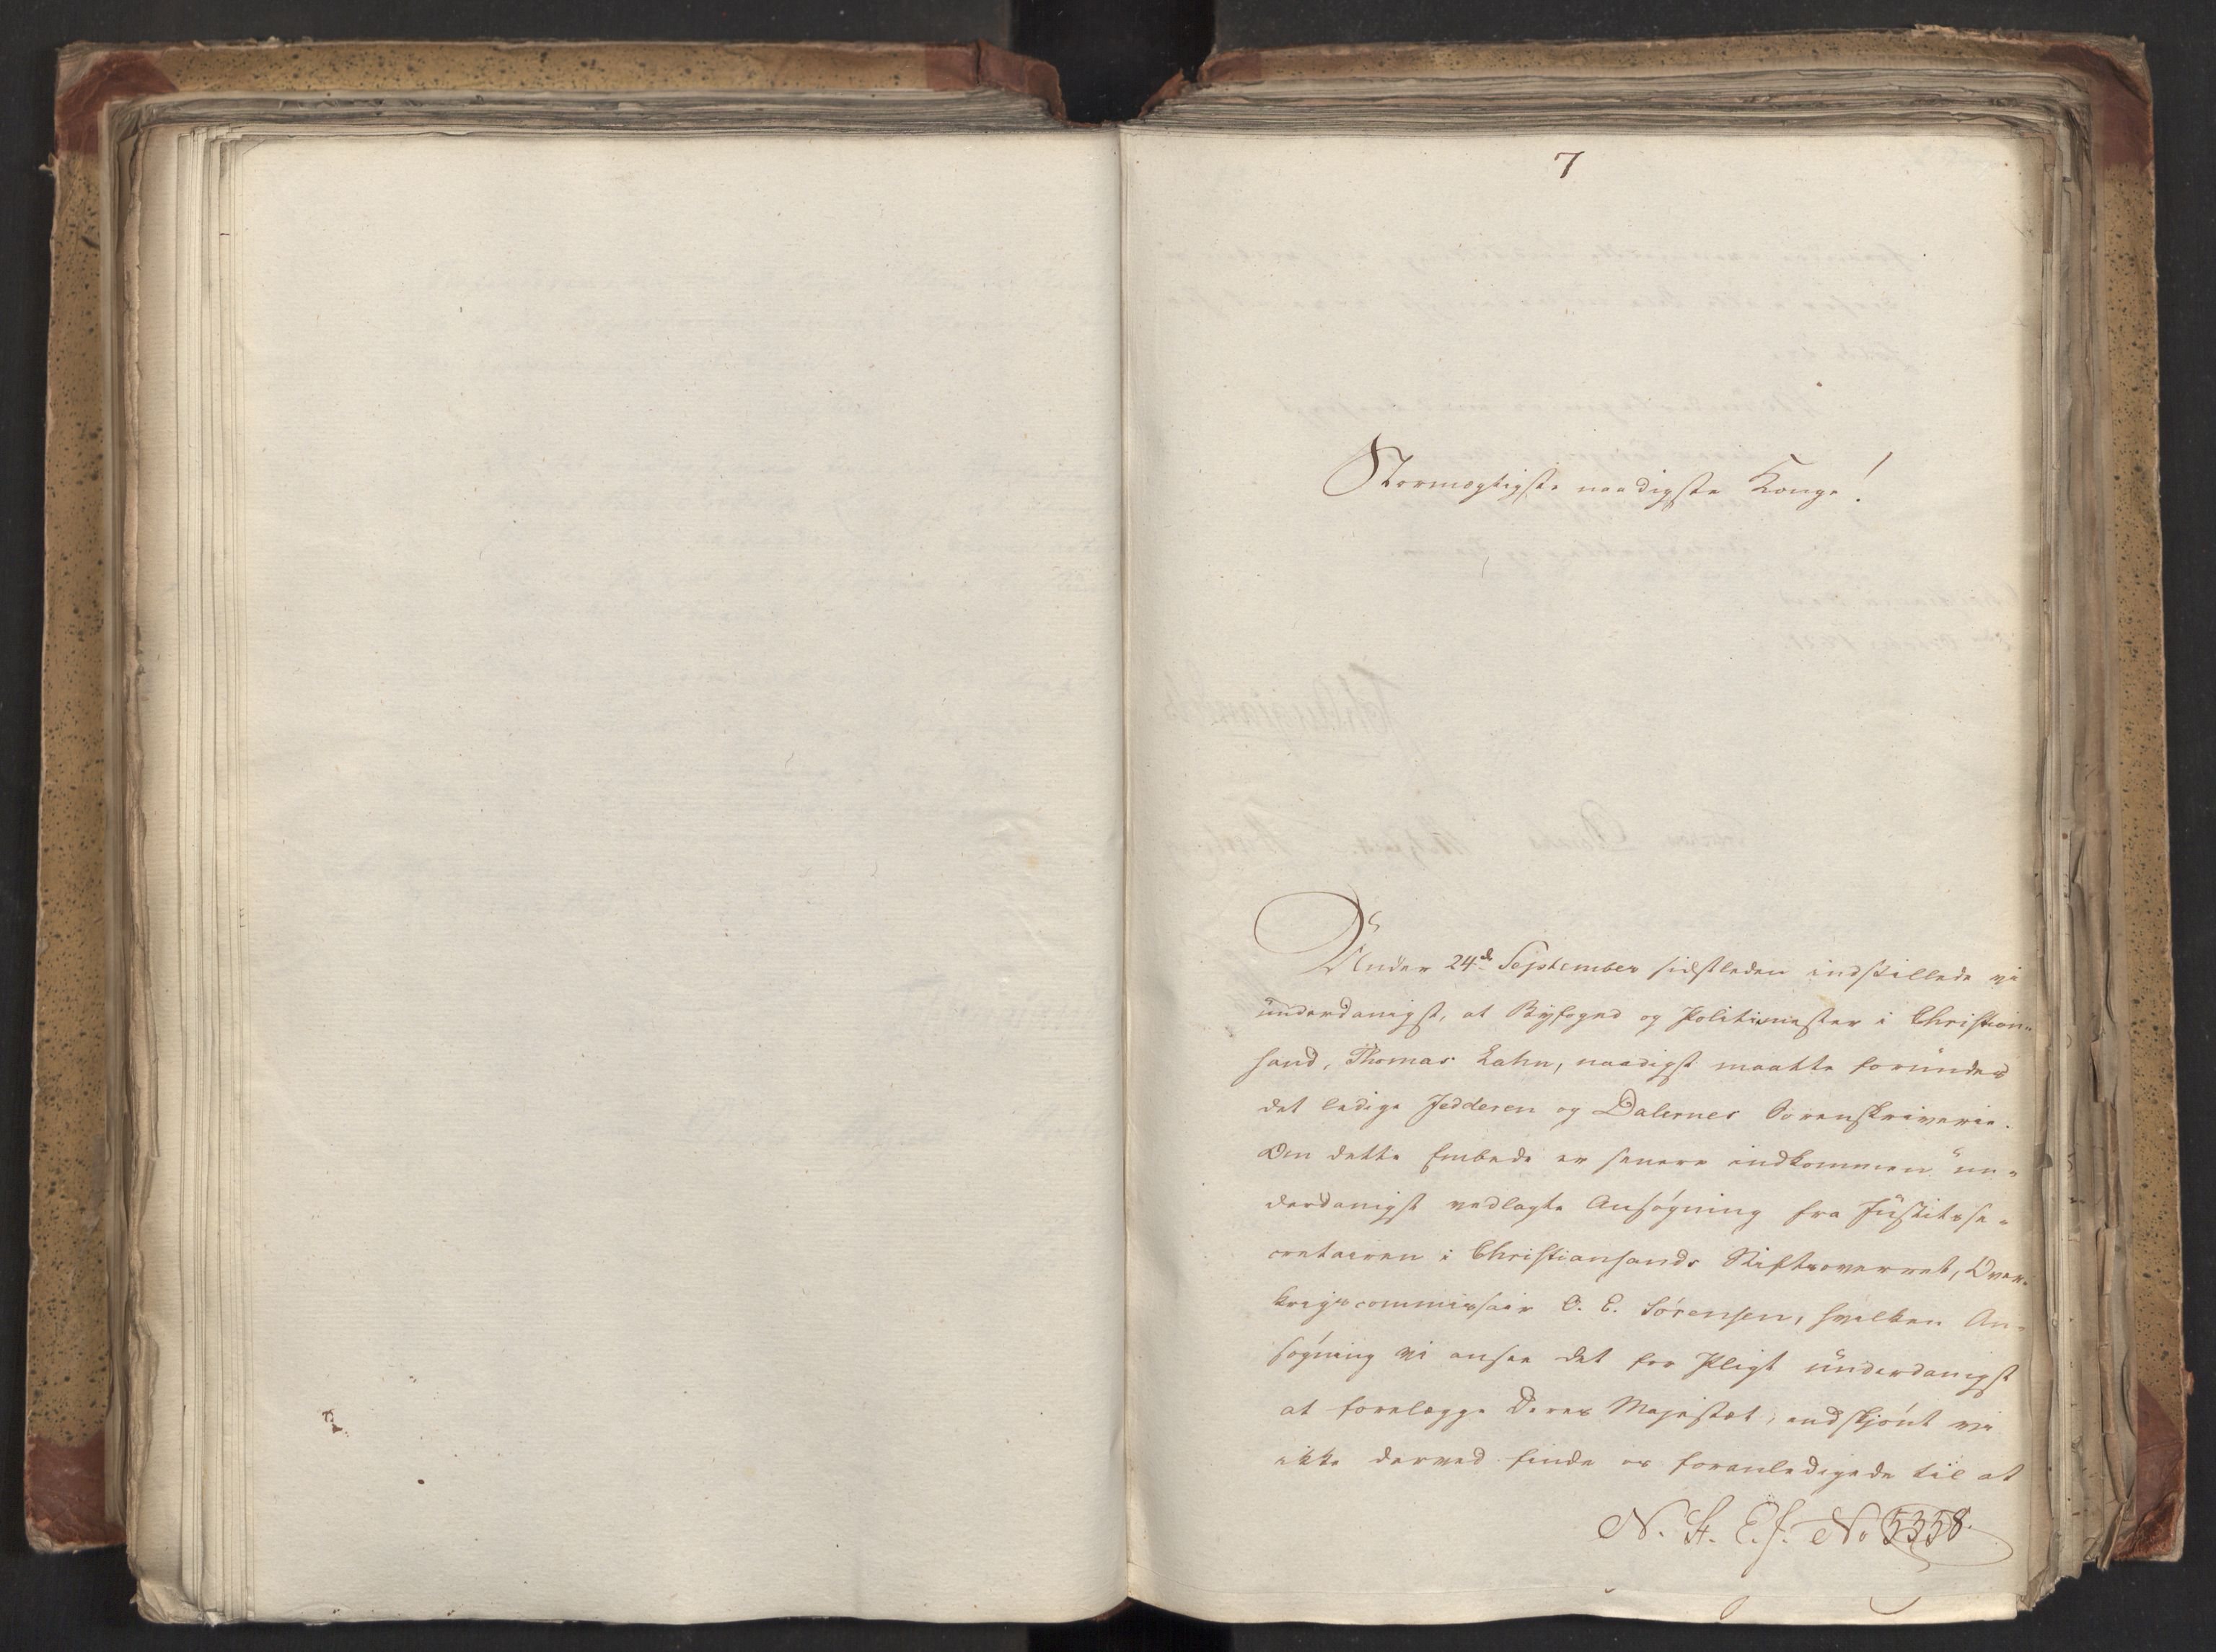 7
Stormægtigste naadigste Konge!
Under 24de September sidstleden indstillede vi
underdanigst, at Byfoged og Politimester i Christian-
sand, Thomas Lahn, naadigst maatte forundes
det ledige Jedderen og Dalernes Sorenskriverie.
Om dette Embede er senere indkommen un-
derdanigst vedlagte Ansøgning fra Justitsse-
cretairen i Christiansands Stiftsoverret, Over-
krigscommissair O. E. Sørensen, hvilken An-
søgning vi ansee det for Pligt underdanigst
at forelægge Deres Majestæt, endskjønt vi
ikke derved finde os foranledigede til at
N. St. E. J. No 5358.